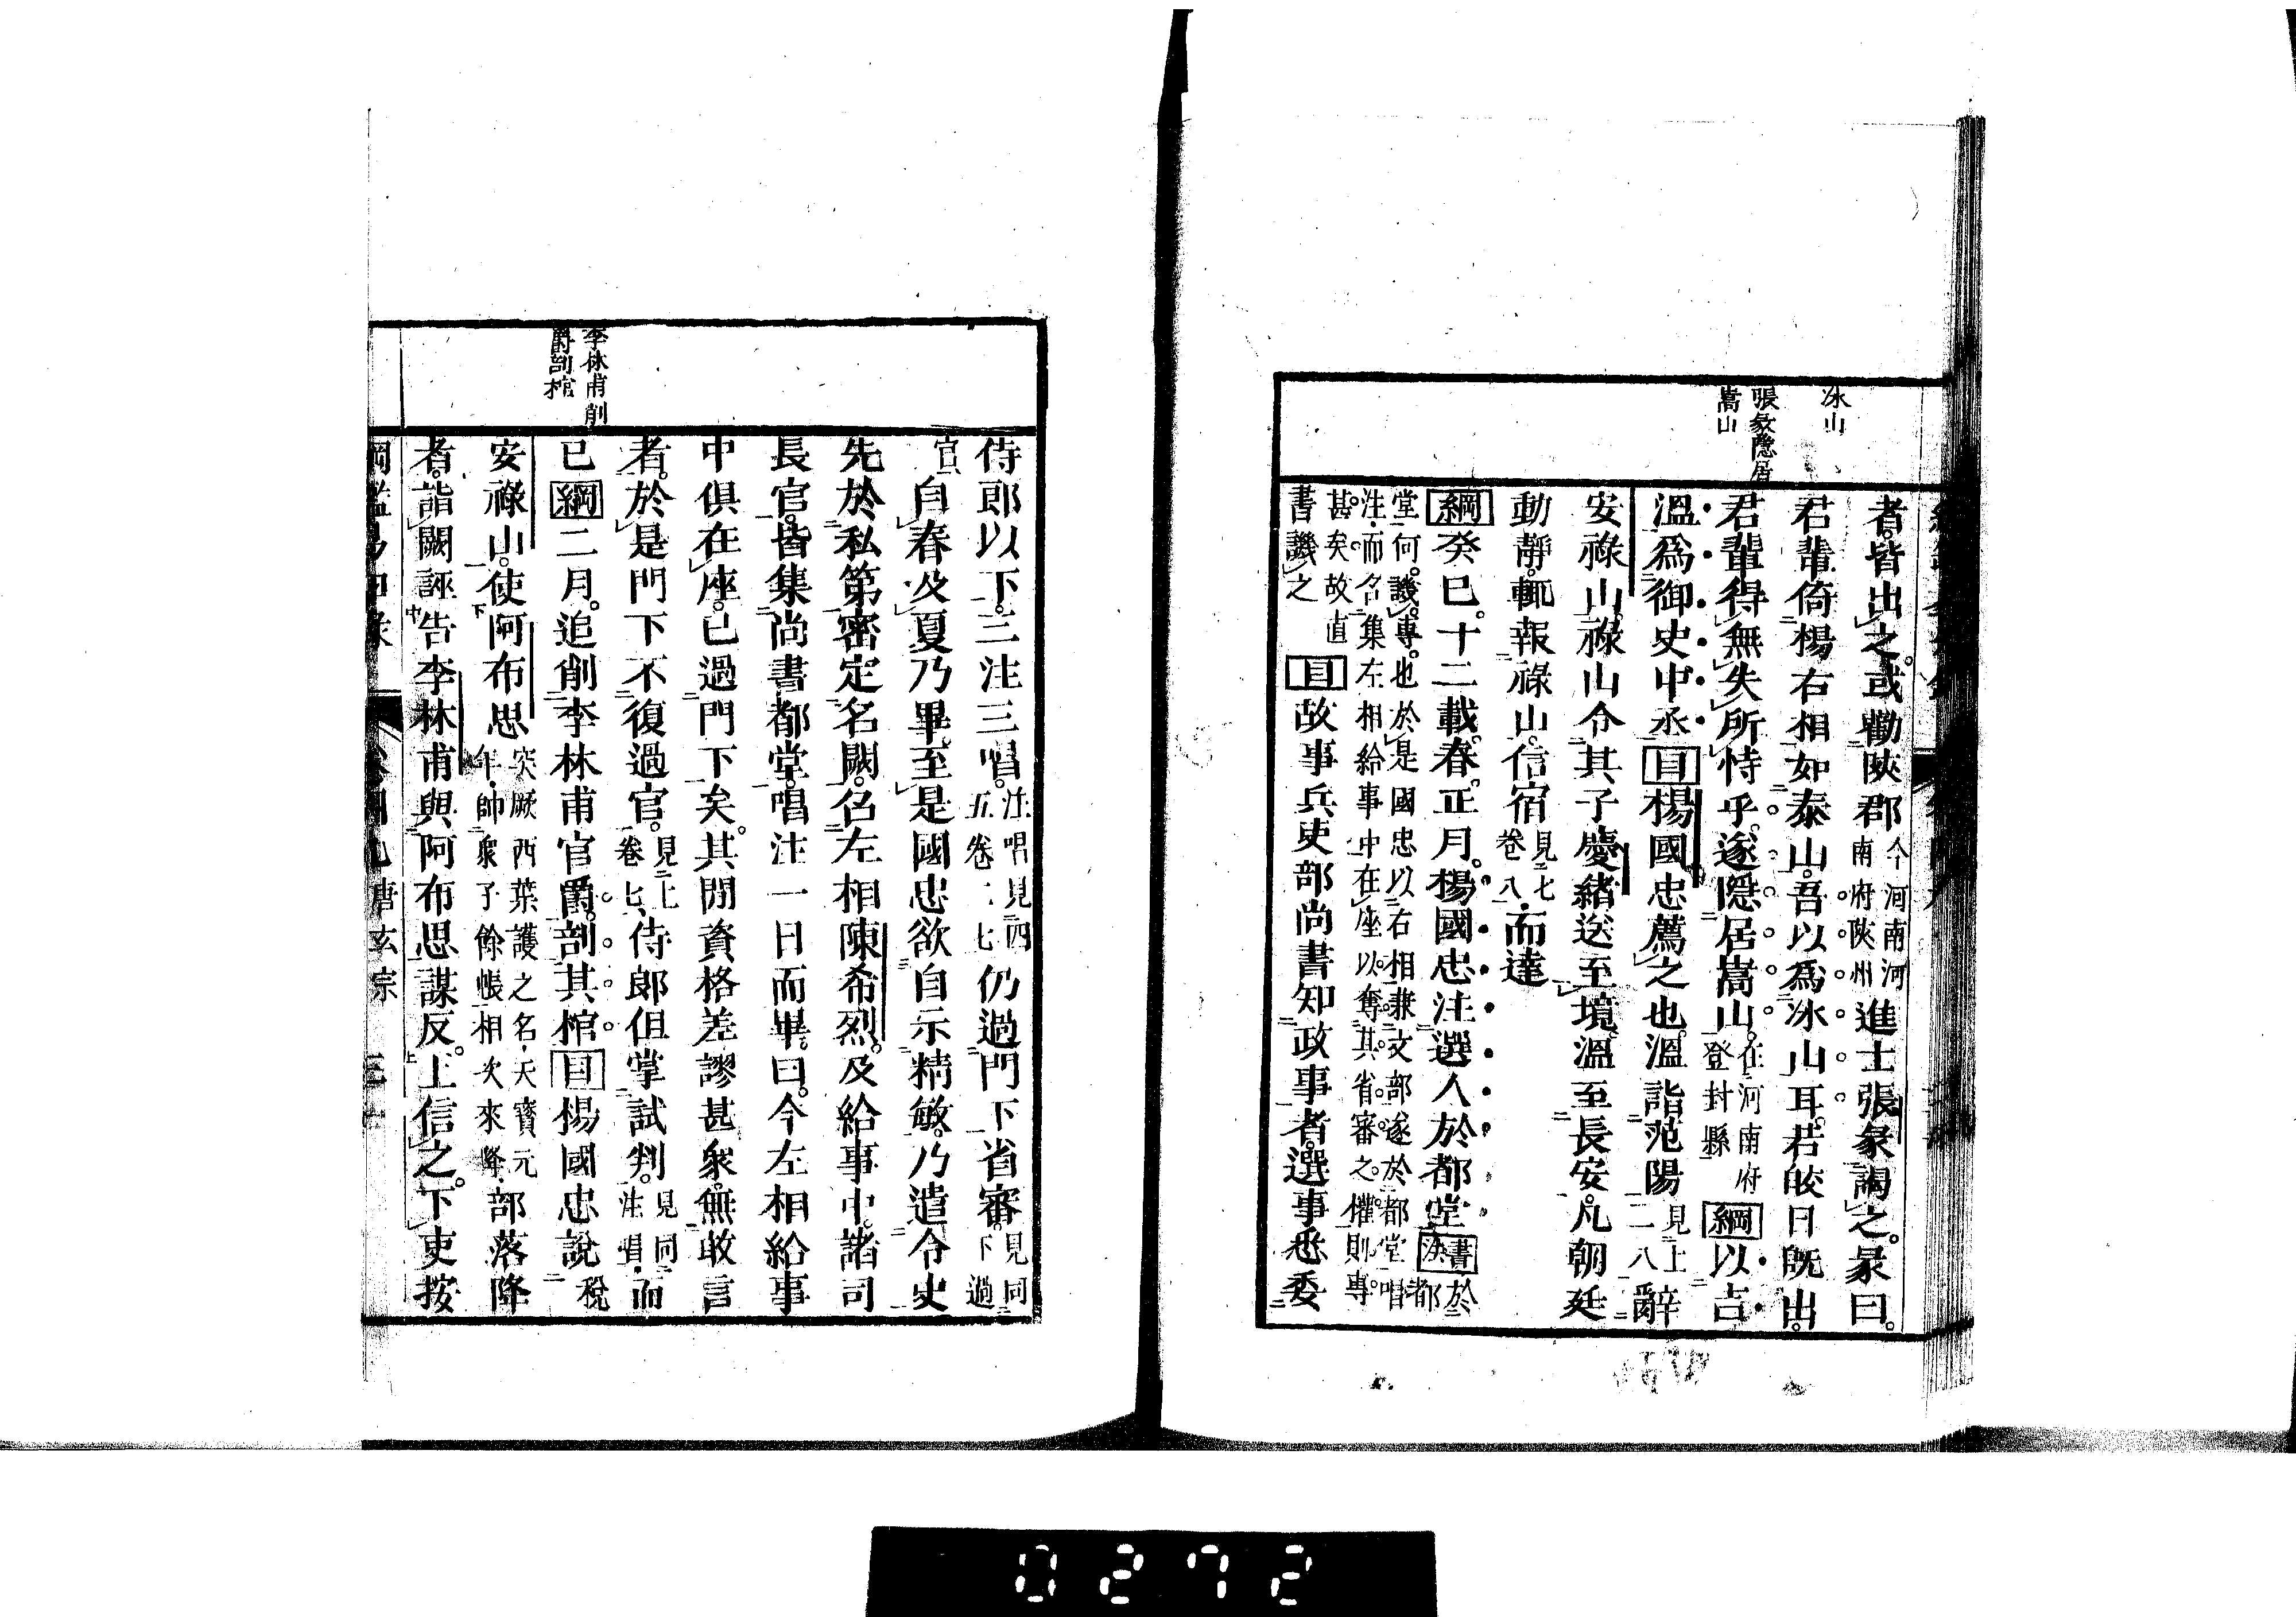 冰山
張彖隱居
嵩山
者。皆出之。或勸陝郡今河南河南府陝州進士張彖謁之。彖曰。
君輩倚楊右相如泰山。吾以爲冰山耳。若皎日既出。
君輩得無失所恃乎。遂隱居嵩山。在河南府登封縣綱以吉
溫爲御史中丞目楊國忠薦之也。溫詣范陽見上二八辭
安祿山。祿山令其子慶緒送至境。溫至長安。凡朝廷
動靜。輒報祿山。信宿見七卷八而達
綱癸巳。十二載。春。正月。楊國忠注選人於都堂書法書於都
堂何。譏專也於是國忠以右相兼文部遂於都堂唱
注。而召集左相給事中在座以奪其省審之權則專
甚矣故直
書譏之目故事兵吏部尚書知政事者。選事悉委
李林甫削
爵剖棺
侍郎以下。三注三唱。注唱見四五卷二七仍過門下省審。見同下過
官自春及夏乃畢。至是國忠欲自示精敏。乃遣令史
先於私第密定名闕。召左相陳希烈。及給事中。諸司
長官。皆集尚書都堂。唱注一日而畢。曰。今左相給事
中俱在座。已過門下矣。其閒資格差謬甚衆。無敢言
者。於是門下不復過官。見上卷七侍郎但掌試判。見同注唱而
已綱二月。追削李林甫官爵。剖其棺目楊國忠說稅
安祿山。使阿布思突厥西葉護之名天寶元年帥衆子餘帳相次來降部落降
者。詣闕誣告李林甫與阿布思謀反。上信之。下吏按
唐玄宗